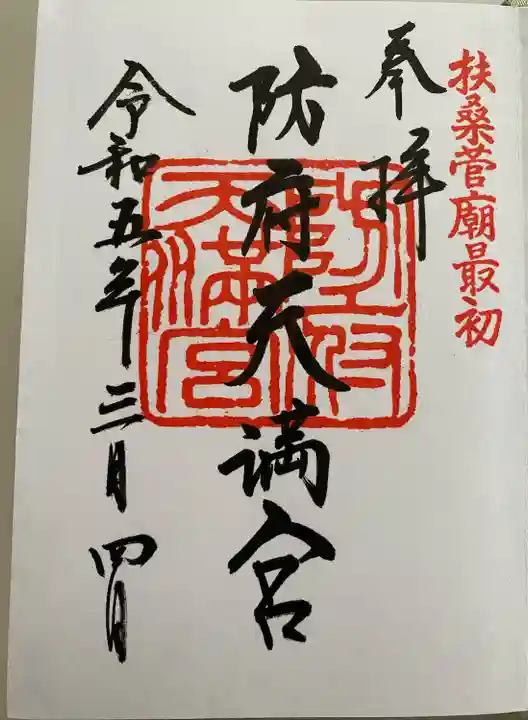 扶桑菅廟最初
奉拝
防府天満宮
令和五年三月四日